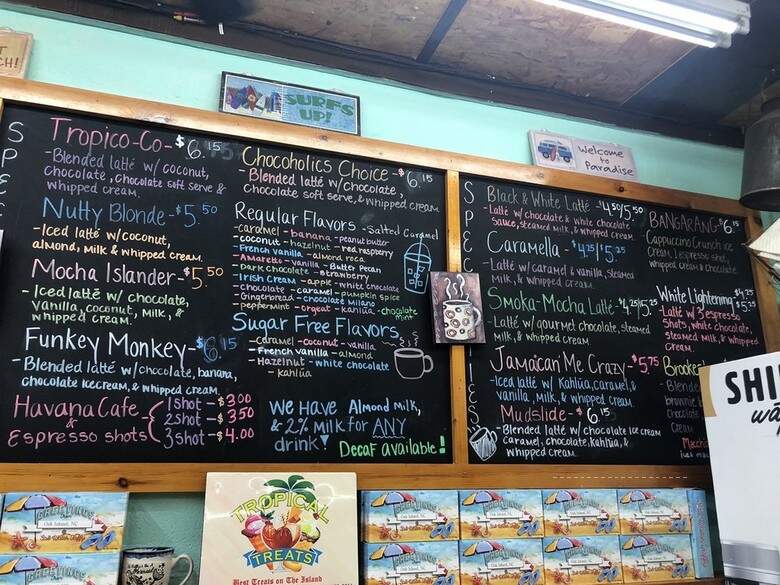 CH!
SURF'S
UP!
Welcome
to
Paradise
SPECI
Tropico-Co-$6.15
-Blended latté w/ coconut,
chocolate, chocolate soft serve &
whipped cream.
Nutty Blonde-$5.50
-Iced latté w/coconut,
almond, milk & whipped cream.
Mocha Islander-$5.50
-Iced latté w/ chocolate,
vanilla, coconut, milk, &
whipped cream.
Funkey Monkey-$6.15
-Blended latté w/chocolate, banana,
chocolate icecream, & whipped cream.
Havana Cafe
&
Espresso shots
1Shot-$3.00
2Shot-$3.50
3shot-$4.00
Chocoholics Choice-$6.15
-Blended latté w/chocolate,
chocolate soft serve, & whipped cream
Regular Flavors -Salted Caramel
-caramel -banana -peanut butter
-coconut -hazelnut -red raspberry
-French vanilla -almond roca
-Amaretto -vanilla -Butter Pecan
-Dark chocolate -strawberry
-Irish cream -apple -white chocolate
-chocolate -caramel -pumpkin spice
-Gingerbread -chocolate Milano
-peppermint -orgeat -kahlúa -chocolate
mint
Sugar Free Flavors
-caramel -coconut -vanilla
-French vanilla -almond
-Hazelnut -white chocolate
-kahlúa
We Have Almond Milk,
& 2% Milk for ANY
drink!
Decaf available!
SPECIALTIES
Black & White Latté-$4.50/5.50
-Latté w/ chocolate & white chocolate
sauce, steamed milk, & whipped cream.
Caramella-$4.25/$5.25
-Latté w/ caramel & vanilla, steamed
milk, & whipped cream.
Smoka-Mocha Latté-$4.25/5.25
-Latté w/ gourmet chocolate, steamed
milk, & whipped cream.
Jamaican Me Crazy-$5.75
-Iced latté w/ Kahlúa, caramel, &
vanilla, milk, & whipped cream.
Mudslide-$6.15
-Blended latté w/ chocolate ice cream
caramel, chocolate, kahlúa, &
whipped cream.
BANGARANG-$6.15
Cappuccino Crunch ice
cream, 1 espresso shot,
whipped cream & chocolate
White Lightening-$4.75
$5.25
-Latté w/ 3 espresso
shots, white chocolate,
steamed milk, & whipped
cream.
Brooke
-Blende
brownie
Chocolate
Cream
SHI
TROPICAL
TREATS
Best Treats on The Island
GREETINGS
Oak Island, NC
GREETINGS
GREETINGS
GREETINGS
GREETINGS